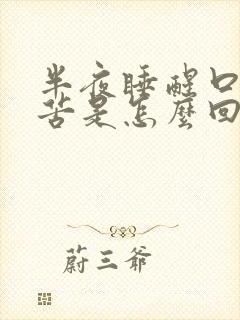 半夜睡醒口
苦是怎麼回
蔚三爺